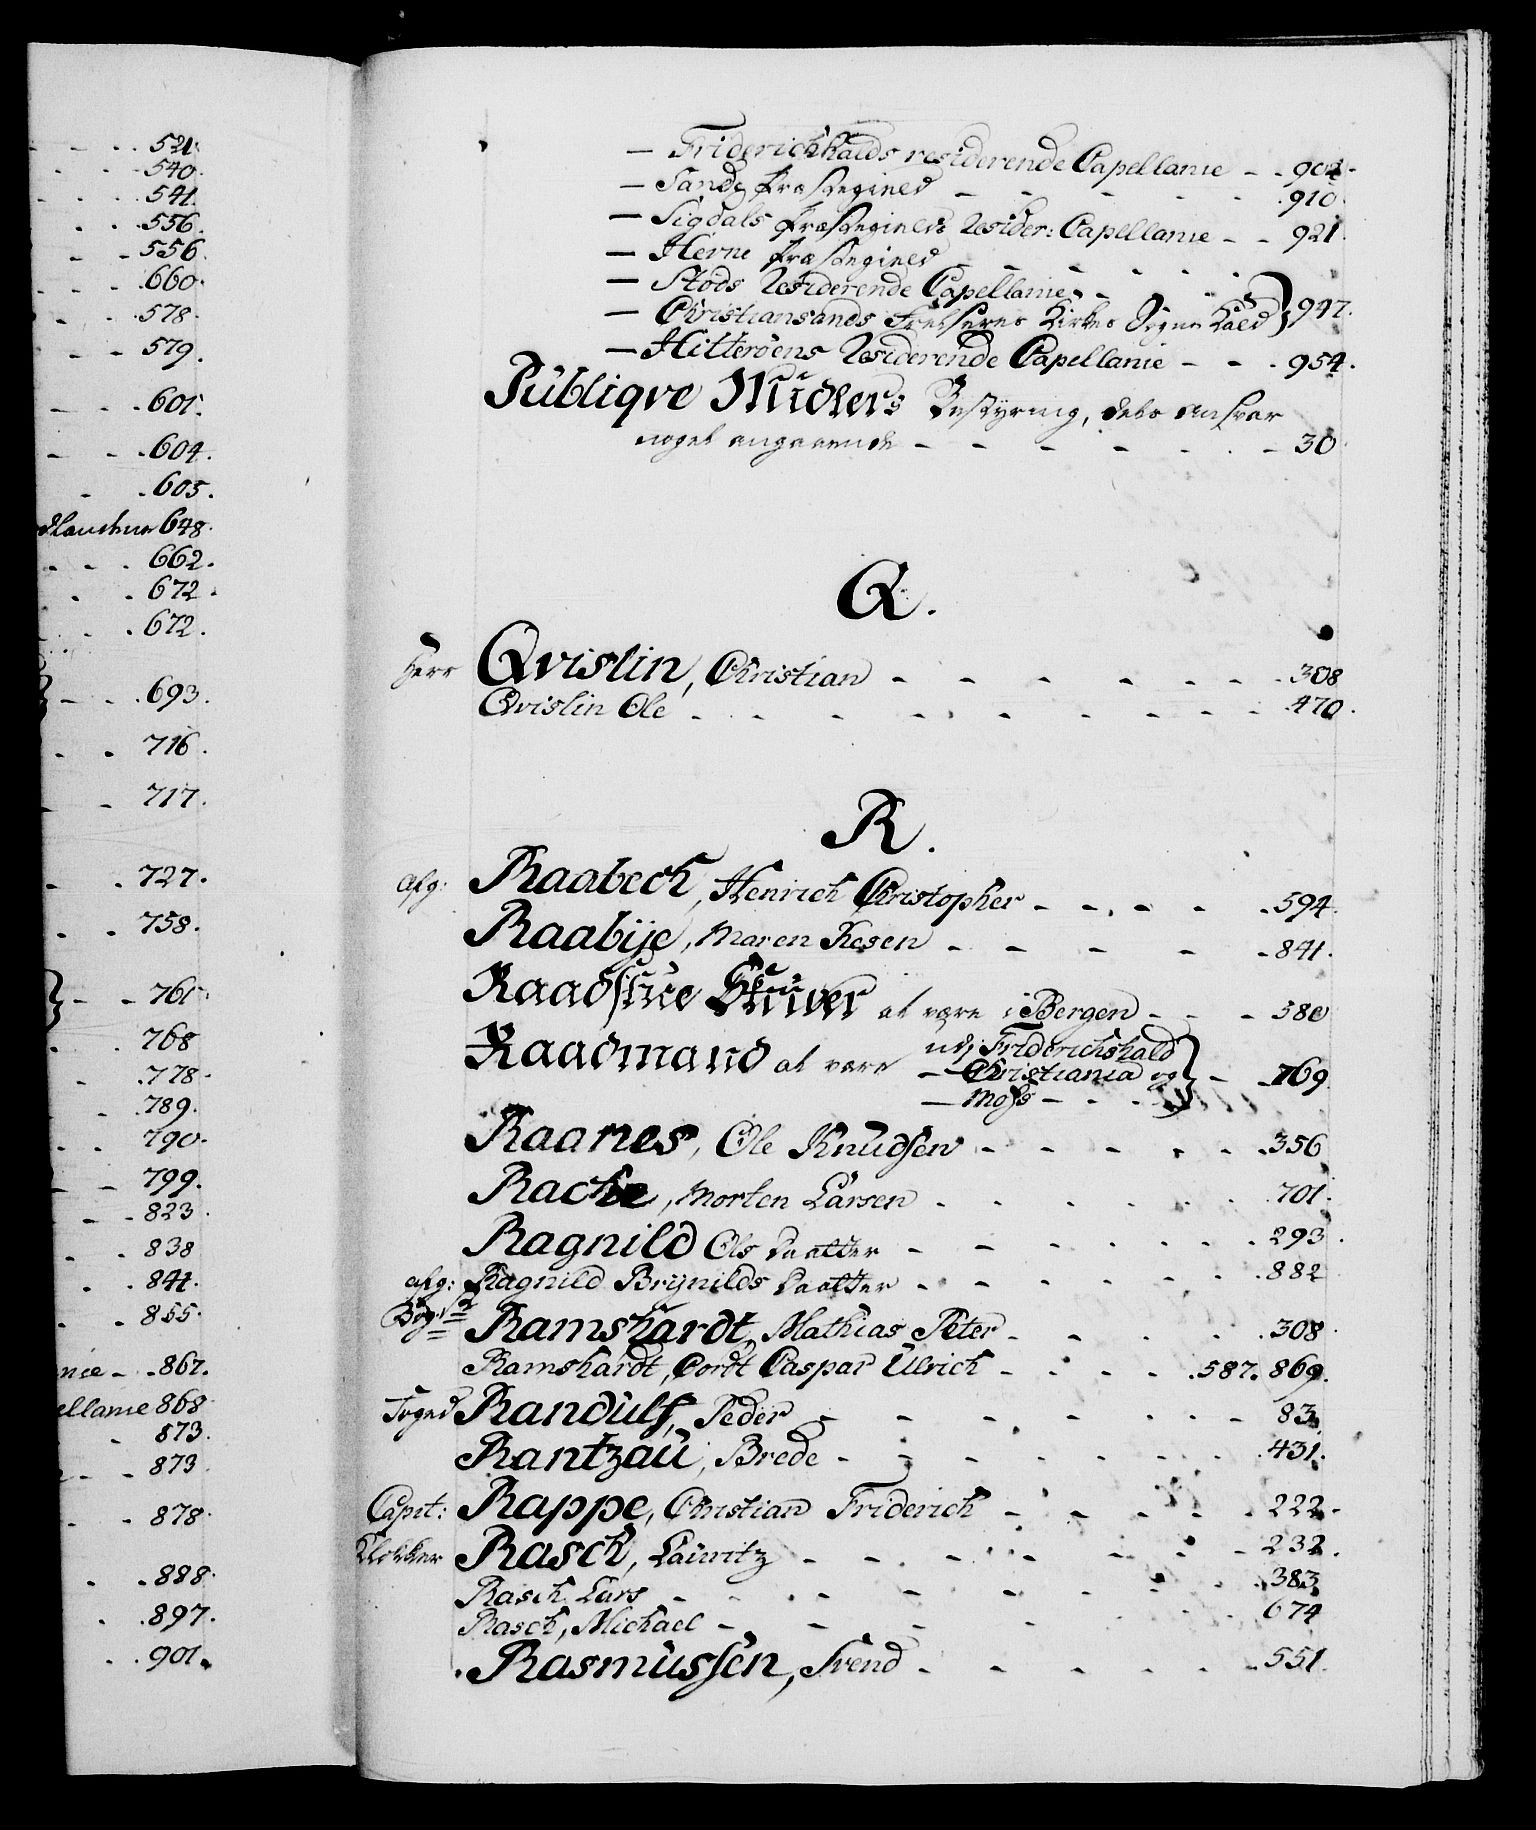 521.
540.
541.
556.
556.
660.
578.
579.
601.
604.
605.
648.
662.
672.
672.
693.
716.
717.
727.
758.
761.
768
778.
789.
790.
799.
823
838
841.
855.
867.
ellanie 868
873.
873
878.
888.
897.
901.
— Friderichhalds residerende Capellanie - - 904.
— Sande Præstegield - - - - 910.
— Sigdals Præstegields Resider: Capellanie - - 921.
— Herne Præstegield
— Stods Residerende Capellanie
— Christiansands Frelseres Kirkes Sogne Kald } 947.
— Hitterøens Residerende Capellanie - - - 954.
Publiqve Midlers Bestyring, dets Ansvar
noget angaaende - - - - - - 30
Q.
Herr Qvislin, Christian - - - - - - 308
Qvislin Ole - - - - - - - 470.
R.
afg: Raabech, Henrich Christopher - - - - 594.
Raabÿe, Maren Resen - - - - - 841.
Raadstue Skriver at være i Bergen - - - 580
Raadmand at være udj Friderichshald
— Christiania og } - - 769
— Moss - - -
Raanes, Ole Knudsen - - - - - 356
Rache, Morten Larsen - - - - - 701.
Ragnild Ols Daatter - - - - - 293.
afg: Ragnild Brÿnilds Daatter - - - - - 882
Ramshardt, Mathias Peter - - - - 308
Ramshardt, Cordt Caspar Ulrich - - - - 587. 869.
Foged Randulf, Peder - - - - - - 83.
Rantzau, Brede - - - - - - 431.
Capit: Rappe, Christian Friderich - - - - 222.
Klokker Rasch, Lauritz - - - - - - 232.
Rasch, Lars - - - - - - - 383.
Rasch, Michael - - - - - - 674
Rasmussen, Svend - - - - - 551.